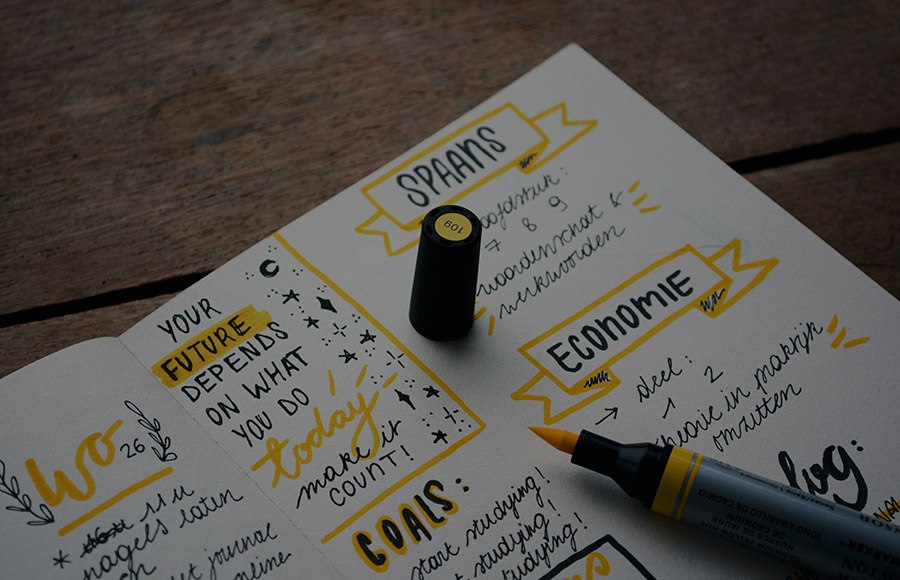 Wo
26
11u
nagels laten
journal
YOUR
FUTURE
DEPENDS
ON WHAT
YOU DO
today
make it
COUNT!
GOALS:
start studying!
studying!
studying!
SPAANS
hoofdstuk:
7 8 9
woordenschat &
werkwoorden
ECONOMIE
→ deel:
1 2
theorie in praktijk
omzetten
log:
109